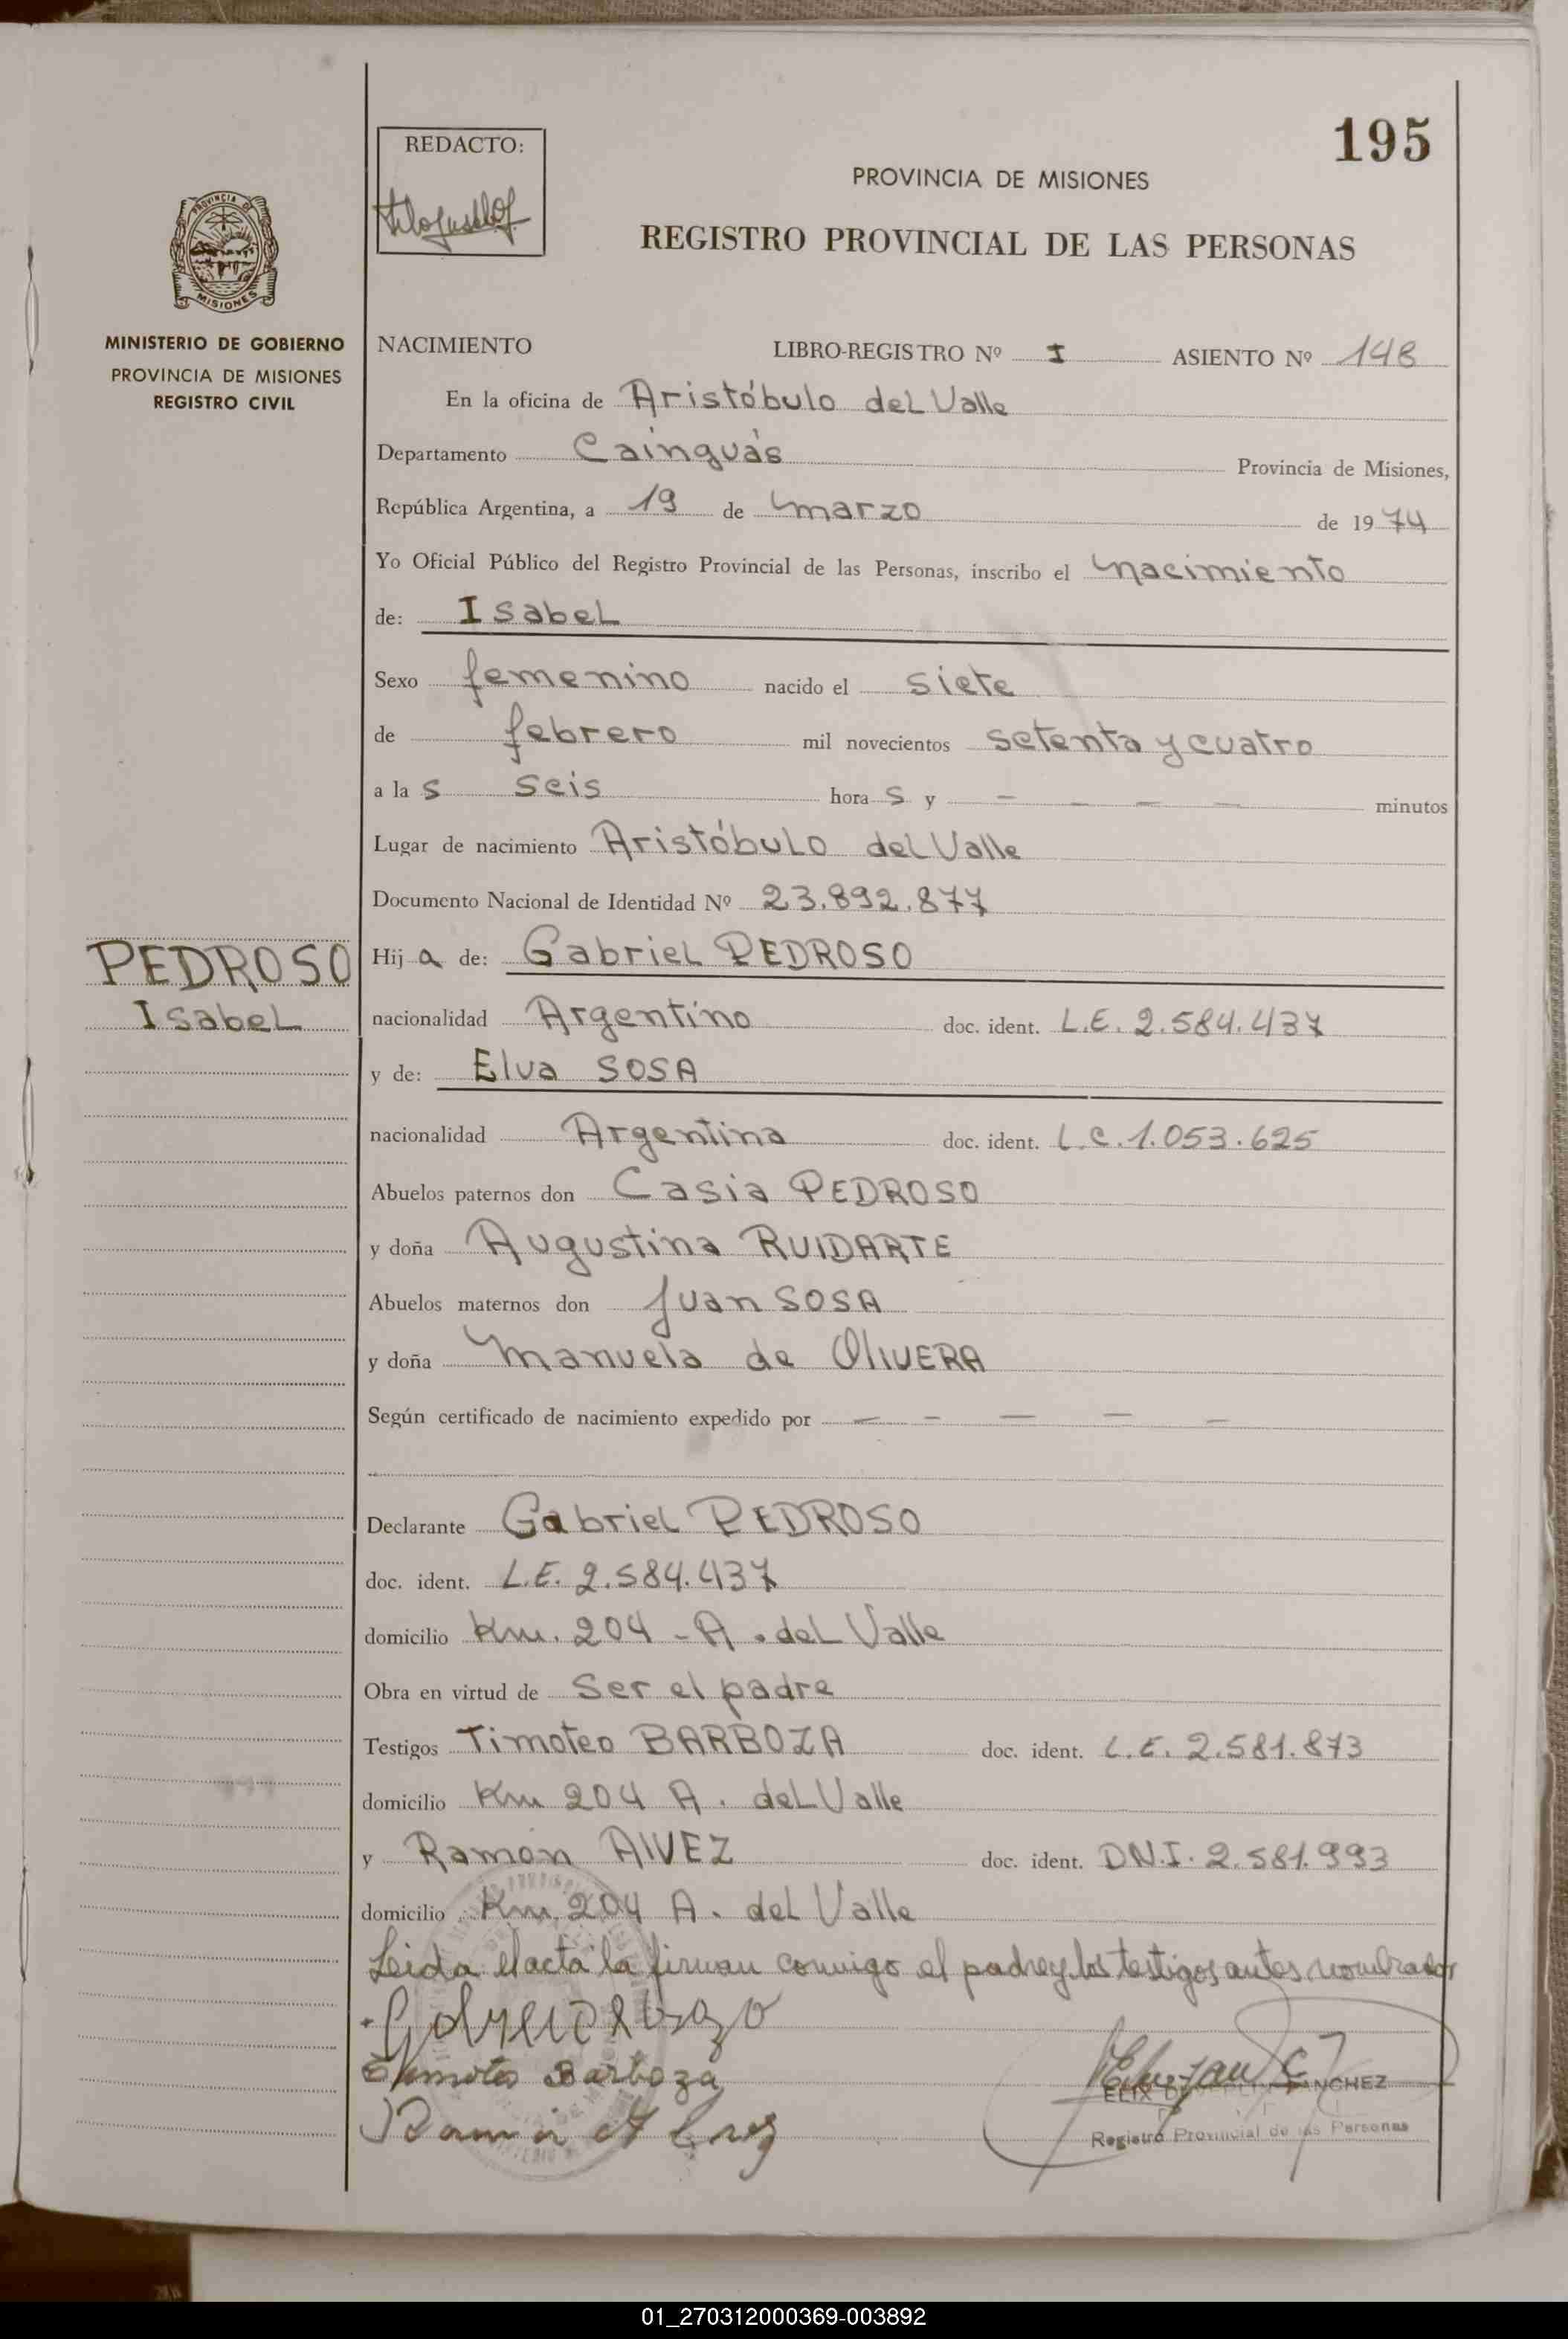 195
REDACTO:
PROVINCIA DE MISIONES
REGISTRO PROVINCIAL DE LAS PERSONAS
PROVINCIA DE
MISIONES
MINISTERIO DE GOBIERNO
PROVINCIA DE MISIONES
REGISTRO CIVIL
NACIMIENTO LIBRO-REGISTRO Nº I ASIENTO Nº 148
En la oficina de Aristóbulo del Valle
Departamento Cainguás Provincia de Misiones,
República Argentina, a 19 de marzo de 1974
Yo Oficial Público del Registro Provincial de las Personas, inscribo el nacimiento
de: Isabel
Sexo femenino nacido el siete
de febrero mil novecientos setenta y cuatro
a las seis horas y - - - - minutos
Lugar de nacimiento Aristóbulo del Valle
Documento Nacional de Identidad Nº 23.892.877
PEDROSO
Isabel
Hija de: Gabriel PEDROSO
nacionalidad Argentino doc. ident. L.E. 2.584.437
y de: Elva SOSA
nacionalidad Argentina doc. ident. L.C. 1.053.625
Abuelos paternos don Casia PEDROSO
y doña Augustina RUIDARTE
Abuelos maternos don Juan SOSA
y doña Manuela de OlIVERA
Según certificado de nacimiento expedido por - - - - -
Declarante Gabriel PEDROSO
doc. ident. L.E. 2.584.437
domicilio Km. 204 - A. del Valle
Obra en virtud de Ser el padre
Testigos Timoteo BARBOZA doc. ident. L.E. 2.581.873
domicilio Km 204 A. del Valle
y Ramón AlVEZ doc. ident. D.N.I. 2.581.993
domicilio Km. 204 A. del Valle
Leida el acta la firman conmigo el padre y los testigos antes nombrados
Barboza
SANCHEZ
Registro Provincial de las Personas
01_270312000369-003892